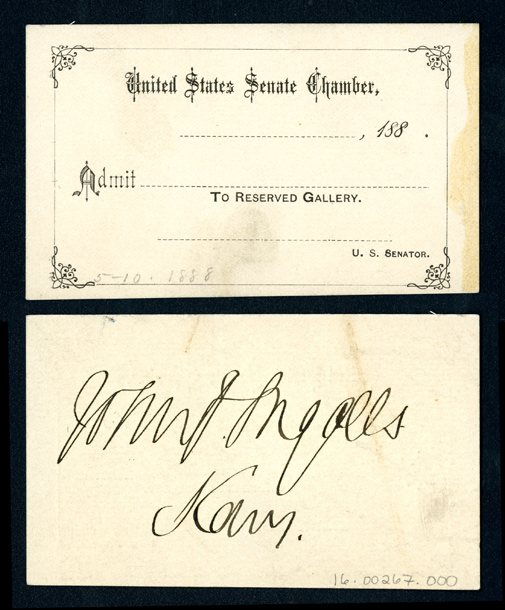 United States Senate Chamber,
, 188 .
Admit
To Reserved Gallery.
U. S. Senator.
5-10. 1888
John J. Ingalls
Kans.
16.00267.000